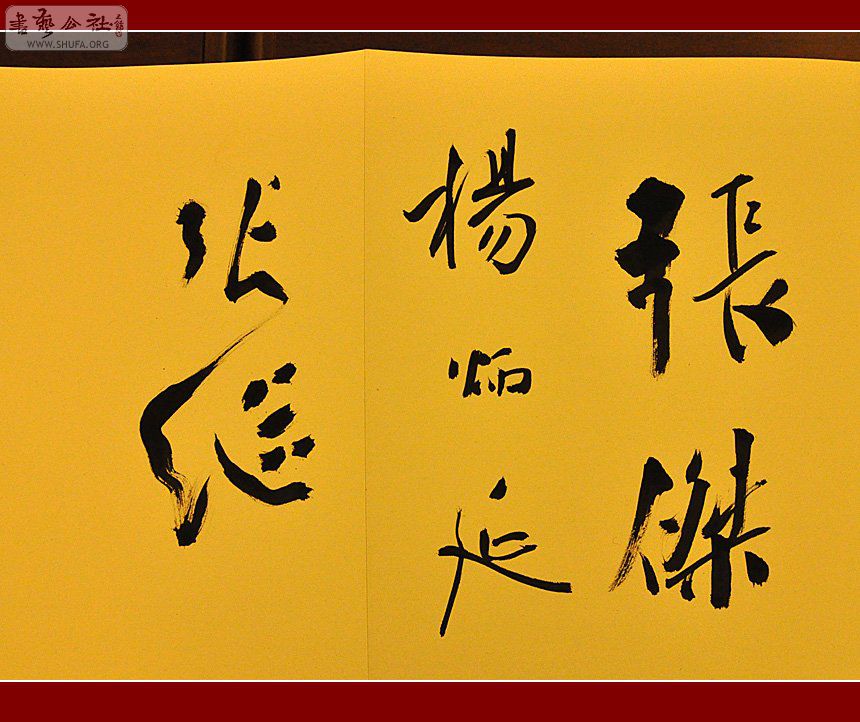 張傑
楊炳延
张继
書藝公社
WWW.SHUFA.ORG